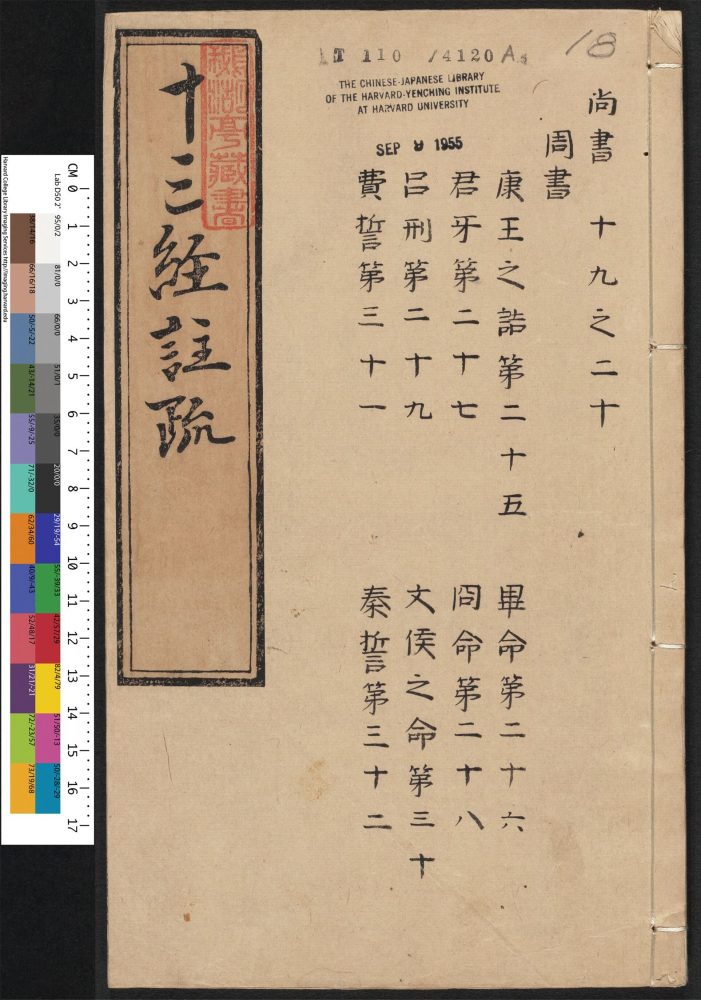 18
T 110 /4120 A
THE CHINESE-JAPANESE LIBRARY
OF THE HARVARD-YENCHING INSTITUTE
AT HARVARD UNIVERSITY
SEP 9 1955
尚書 十九之二十
周書
康王之誥第二十五 畢命第二十六
君牙第二十七 冏命第二十八
吕刑第二十九 文侯之命第三十
費誓第三十一 秦誓第三十二
十三經註疏
藏書
CM 0 1 2 3 4 5 6 7 8 9 10 11 12 13 14 15 16 17
Harvard College Library Imaging Services